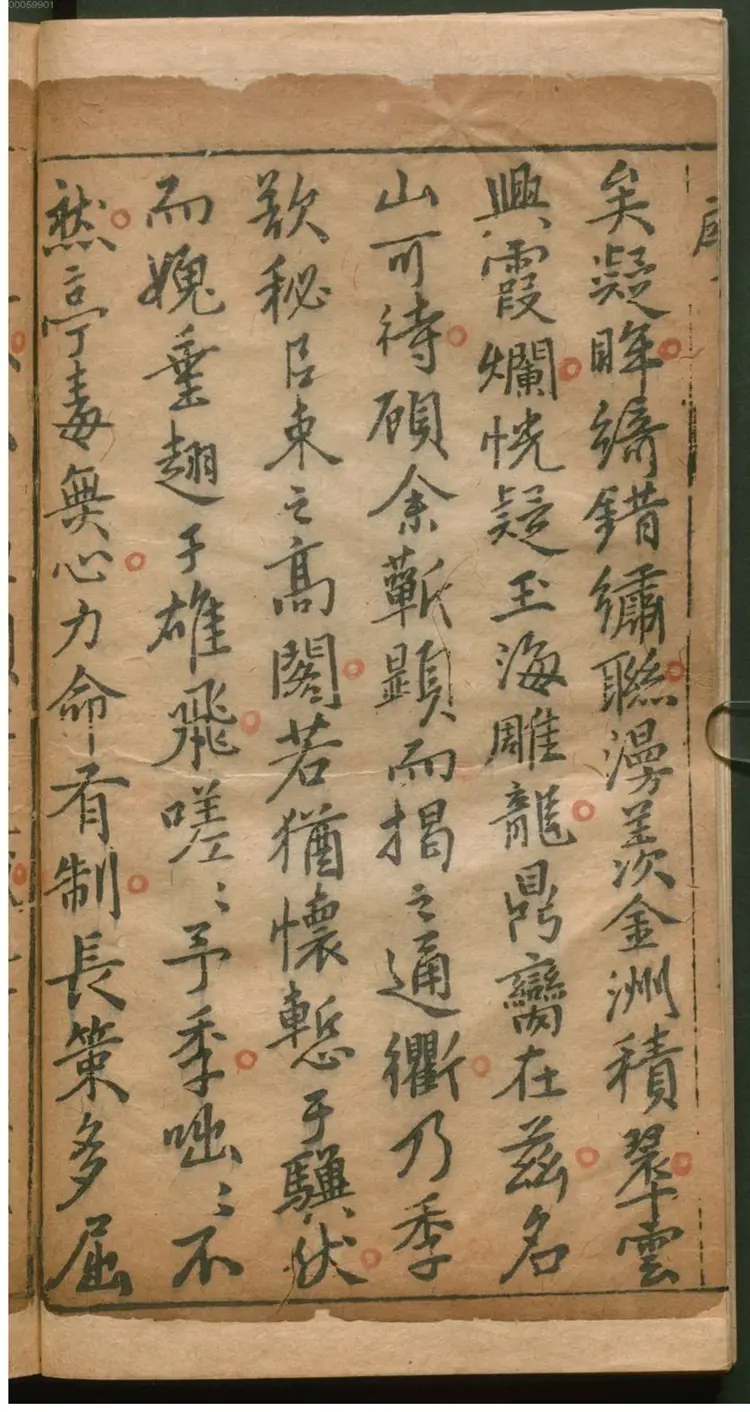 00059901
序
矣凝眸綺錯繡聯漫羨金洲積翠雲
興霞爛恍疑玉海雕龍鼎臠在茲名
山可待碩余蘄顯而揭之通衢乃季
欲秘吕束之高閣若猶懷慙于驥伏
而媿垂翅于雄飛嗟〻予季咄〻不
然亭毒無心力命有制長策多屈